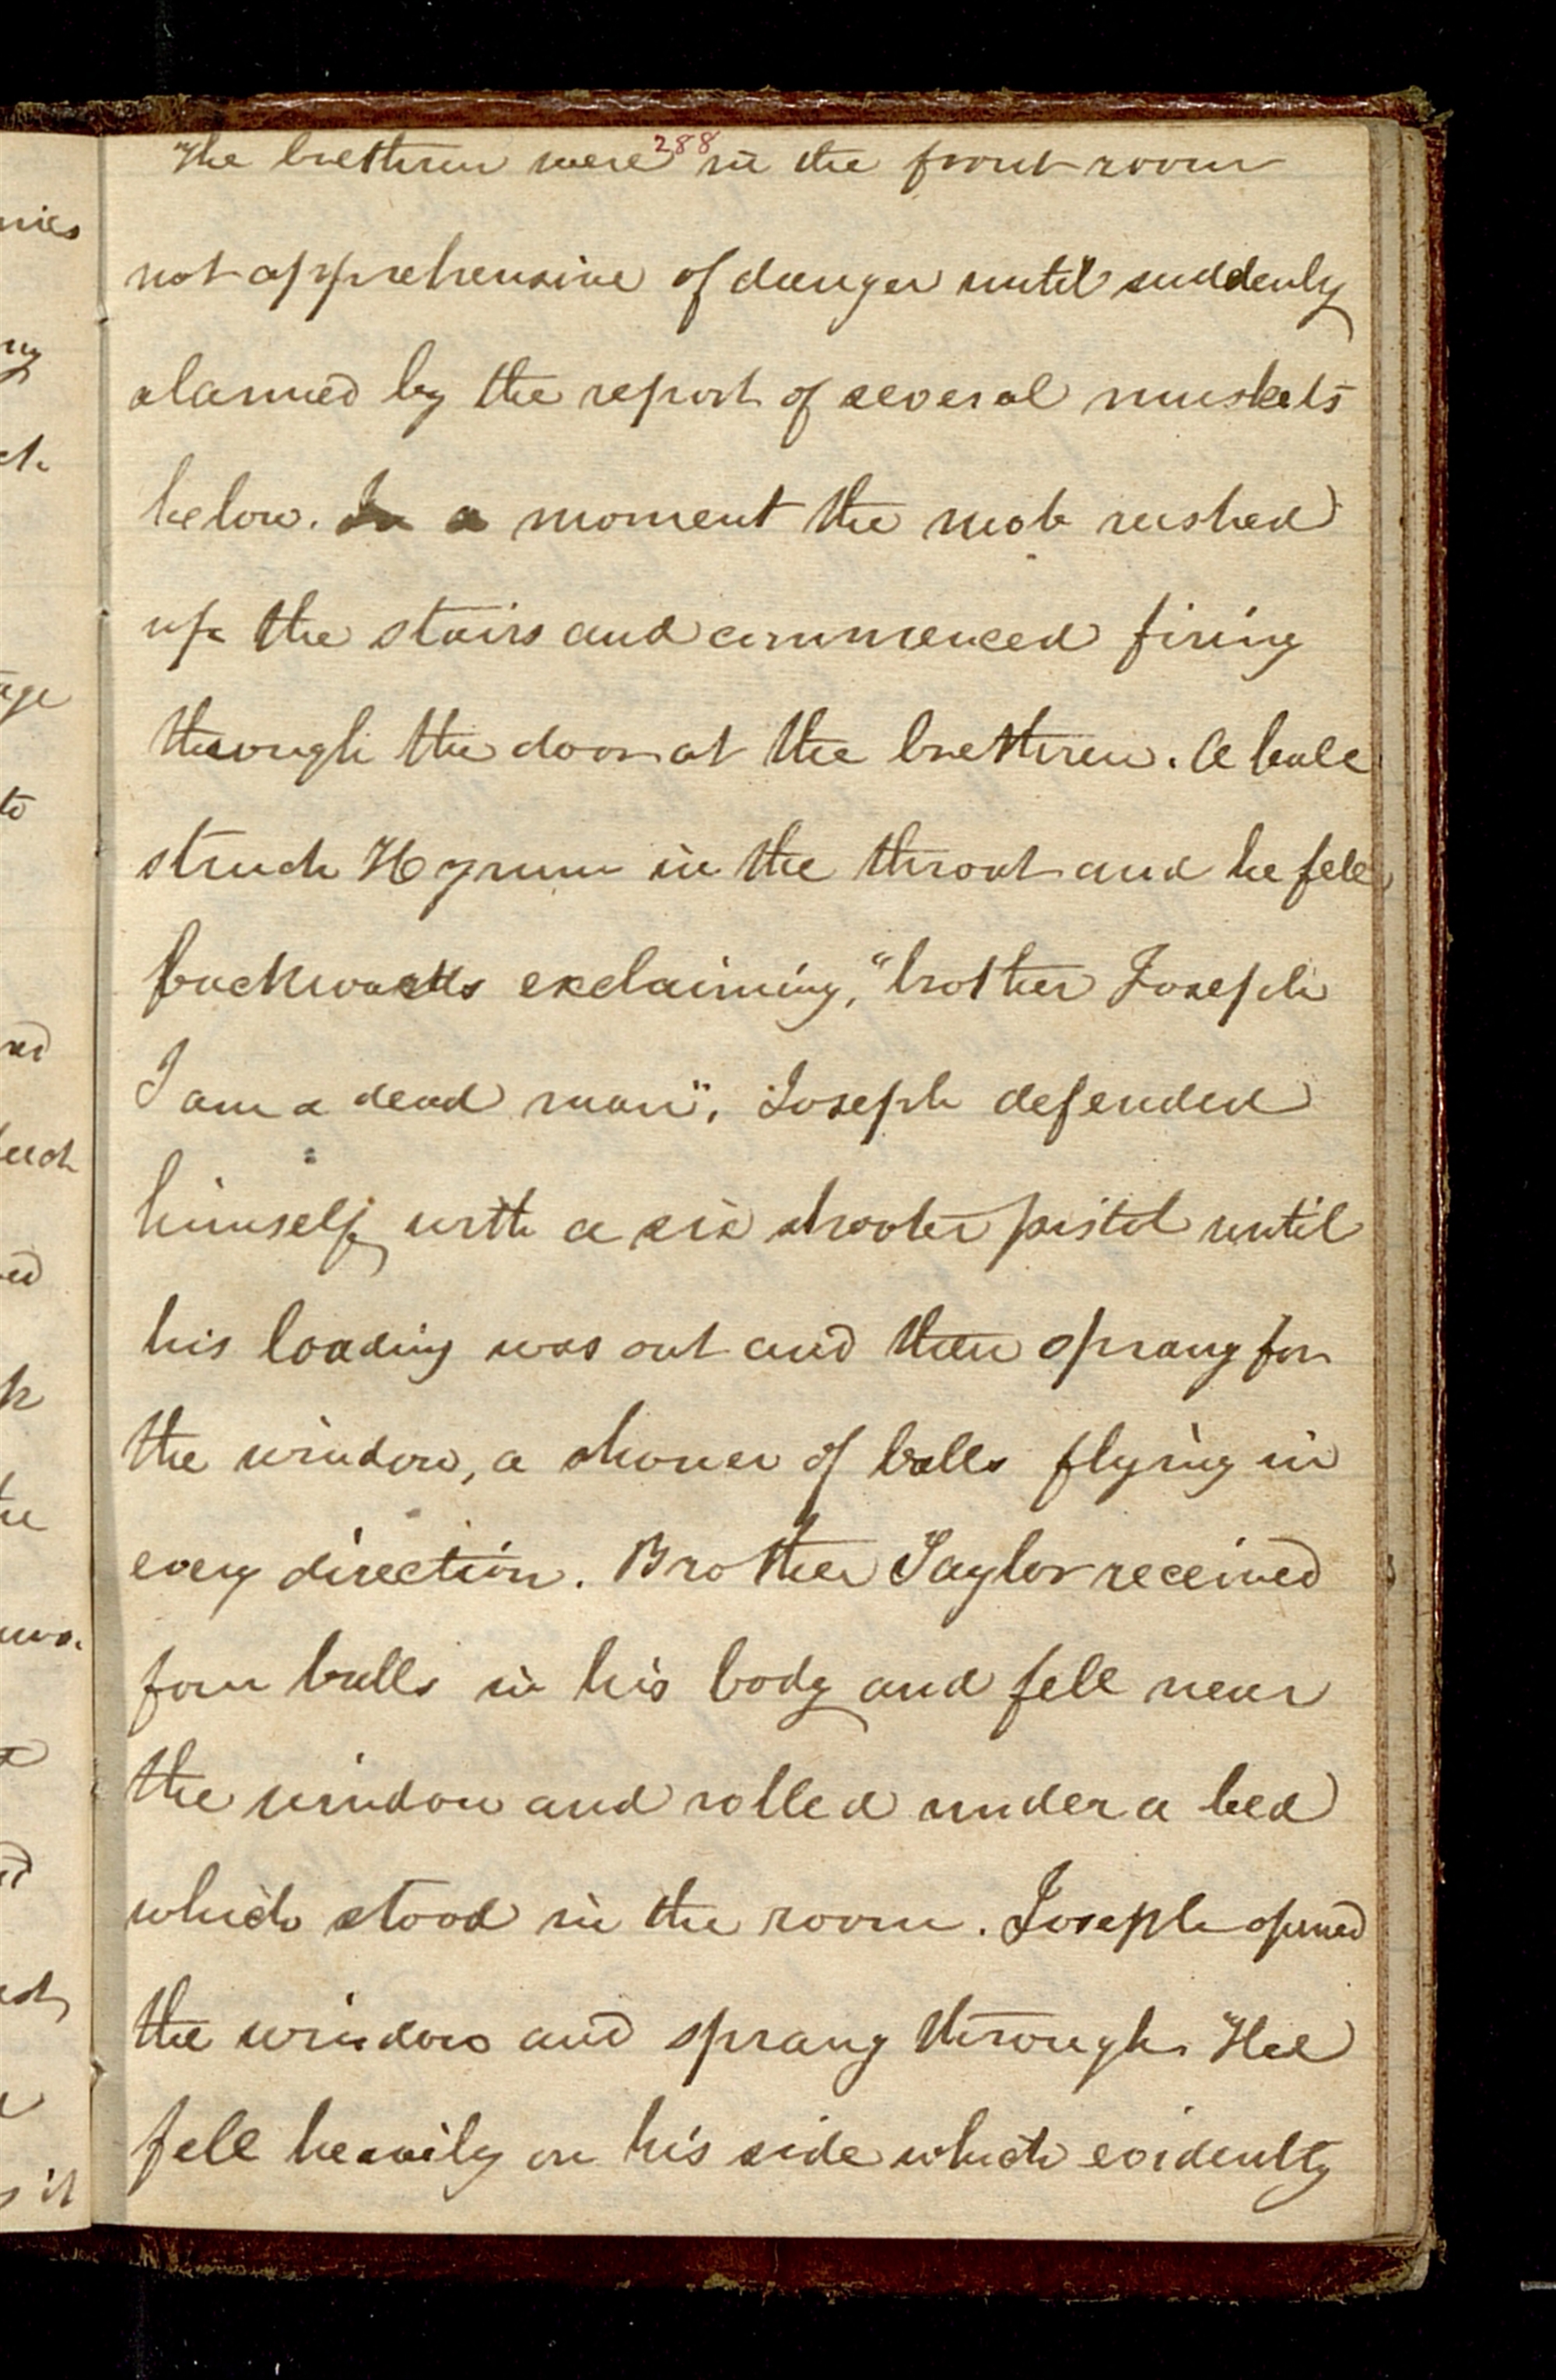 288
The brethren were in the front room
not apprehensive of danger until suddenly
alarmed by the report of several muskets
below. In a moment the mob rushed
up the stairs and commenced firing
through the door at the brethren. A ball
struck Hyrum in the throat and he fell
backwards exclaiming, "brother Joseph
I am a dead man". Joseph defended
himself with a six shooter pistol until
his loading was out and then sprang for
the window, a shower of balls flying in
every direction. Brother Taylor received
four balls in his body and fell near
the window and rolled under a bed
which stood in the room. Joseph opened
the window and sprang through. He
fell heavily on his side which evidently